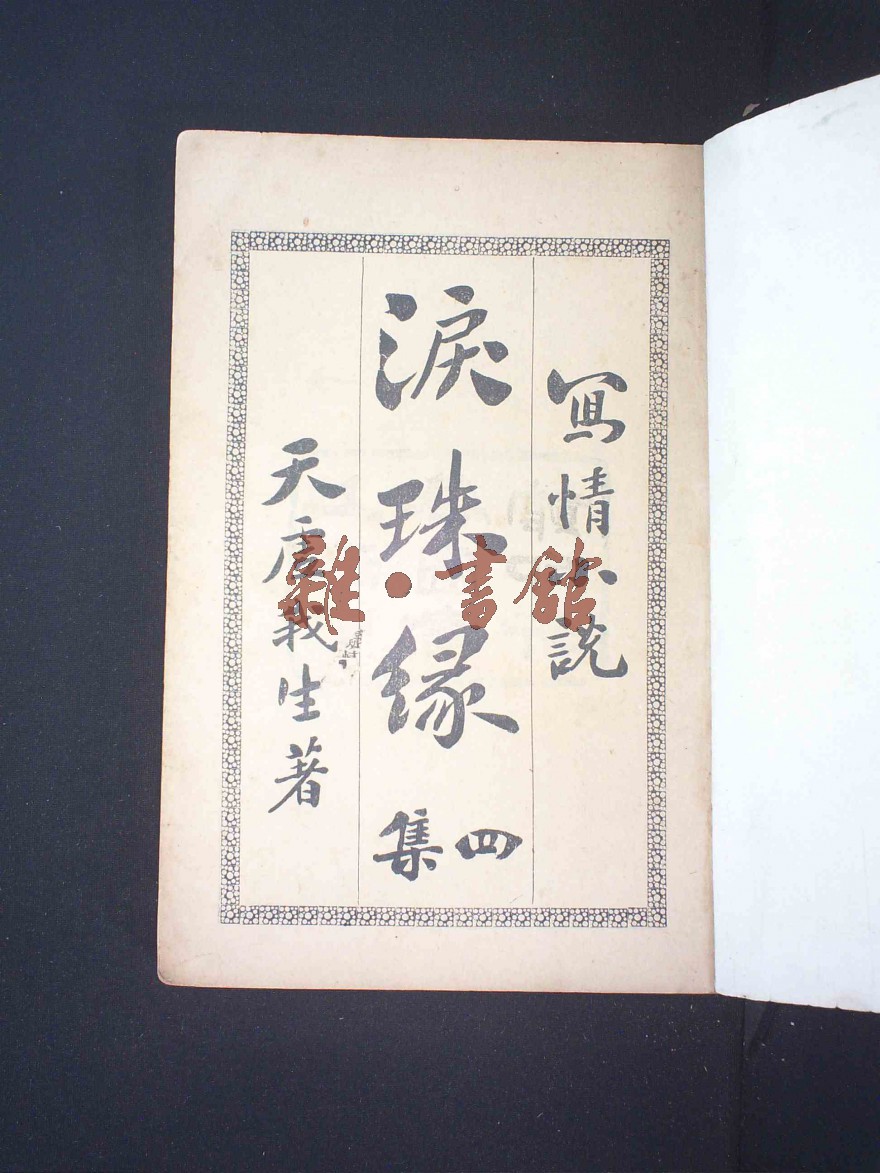 寫情小說
淚珠緣
四集
天虛我生著
雜·書館